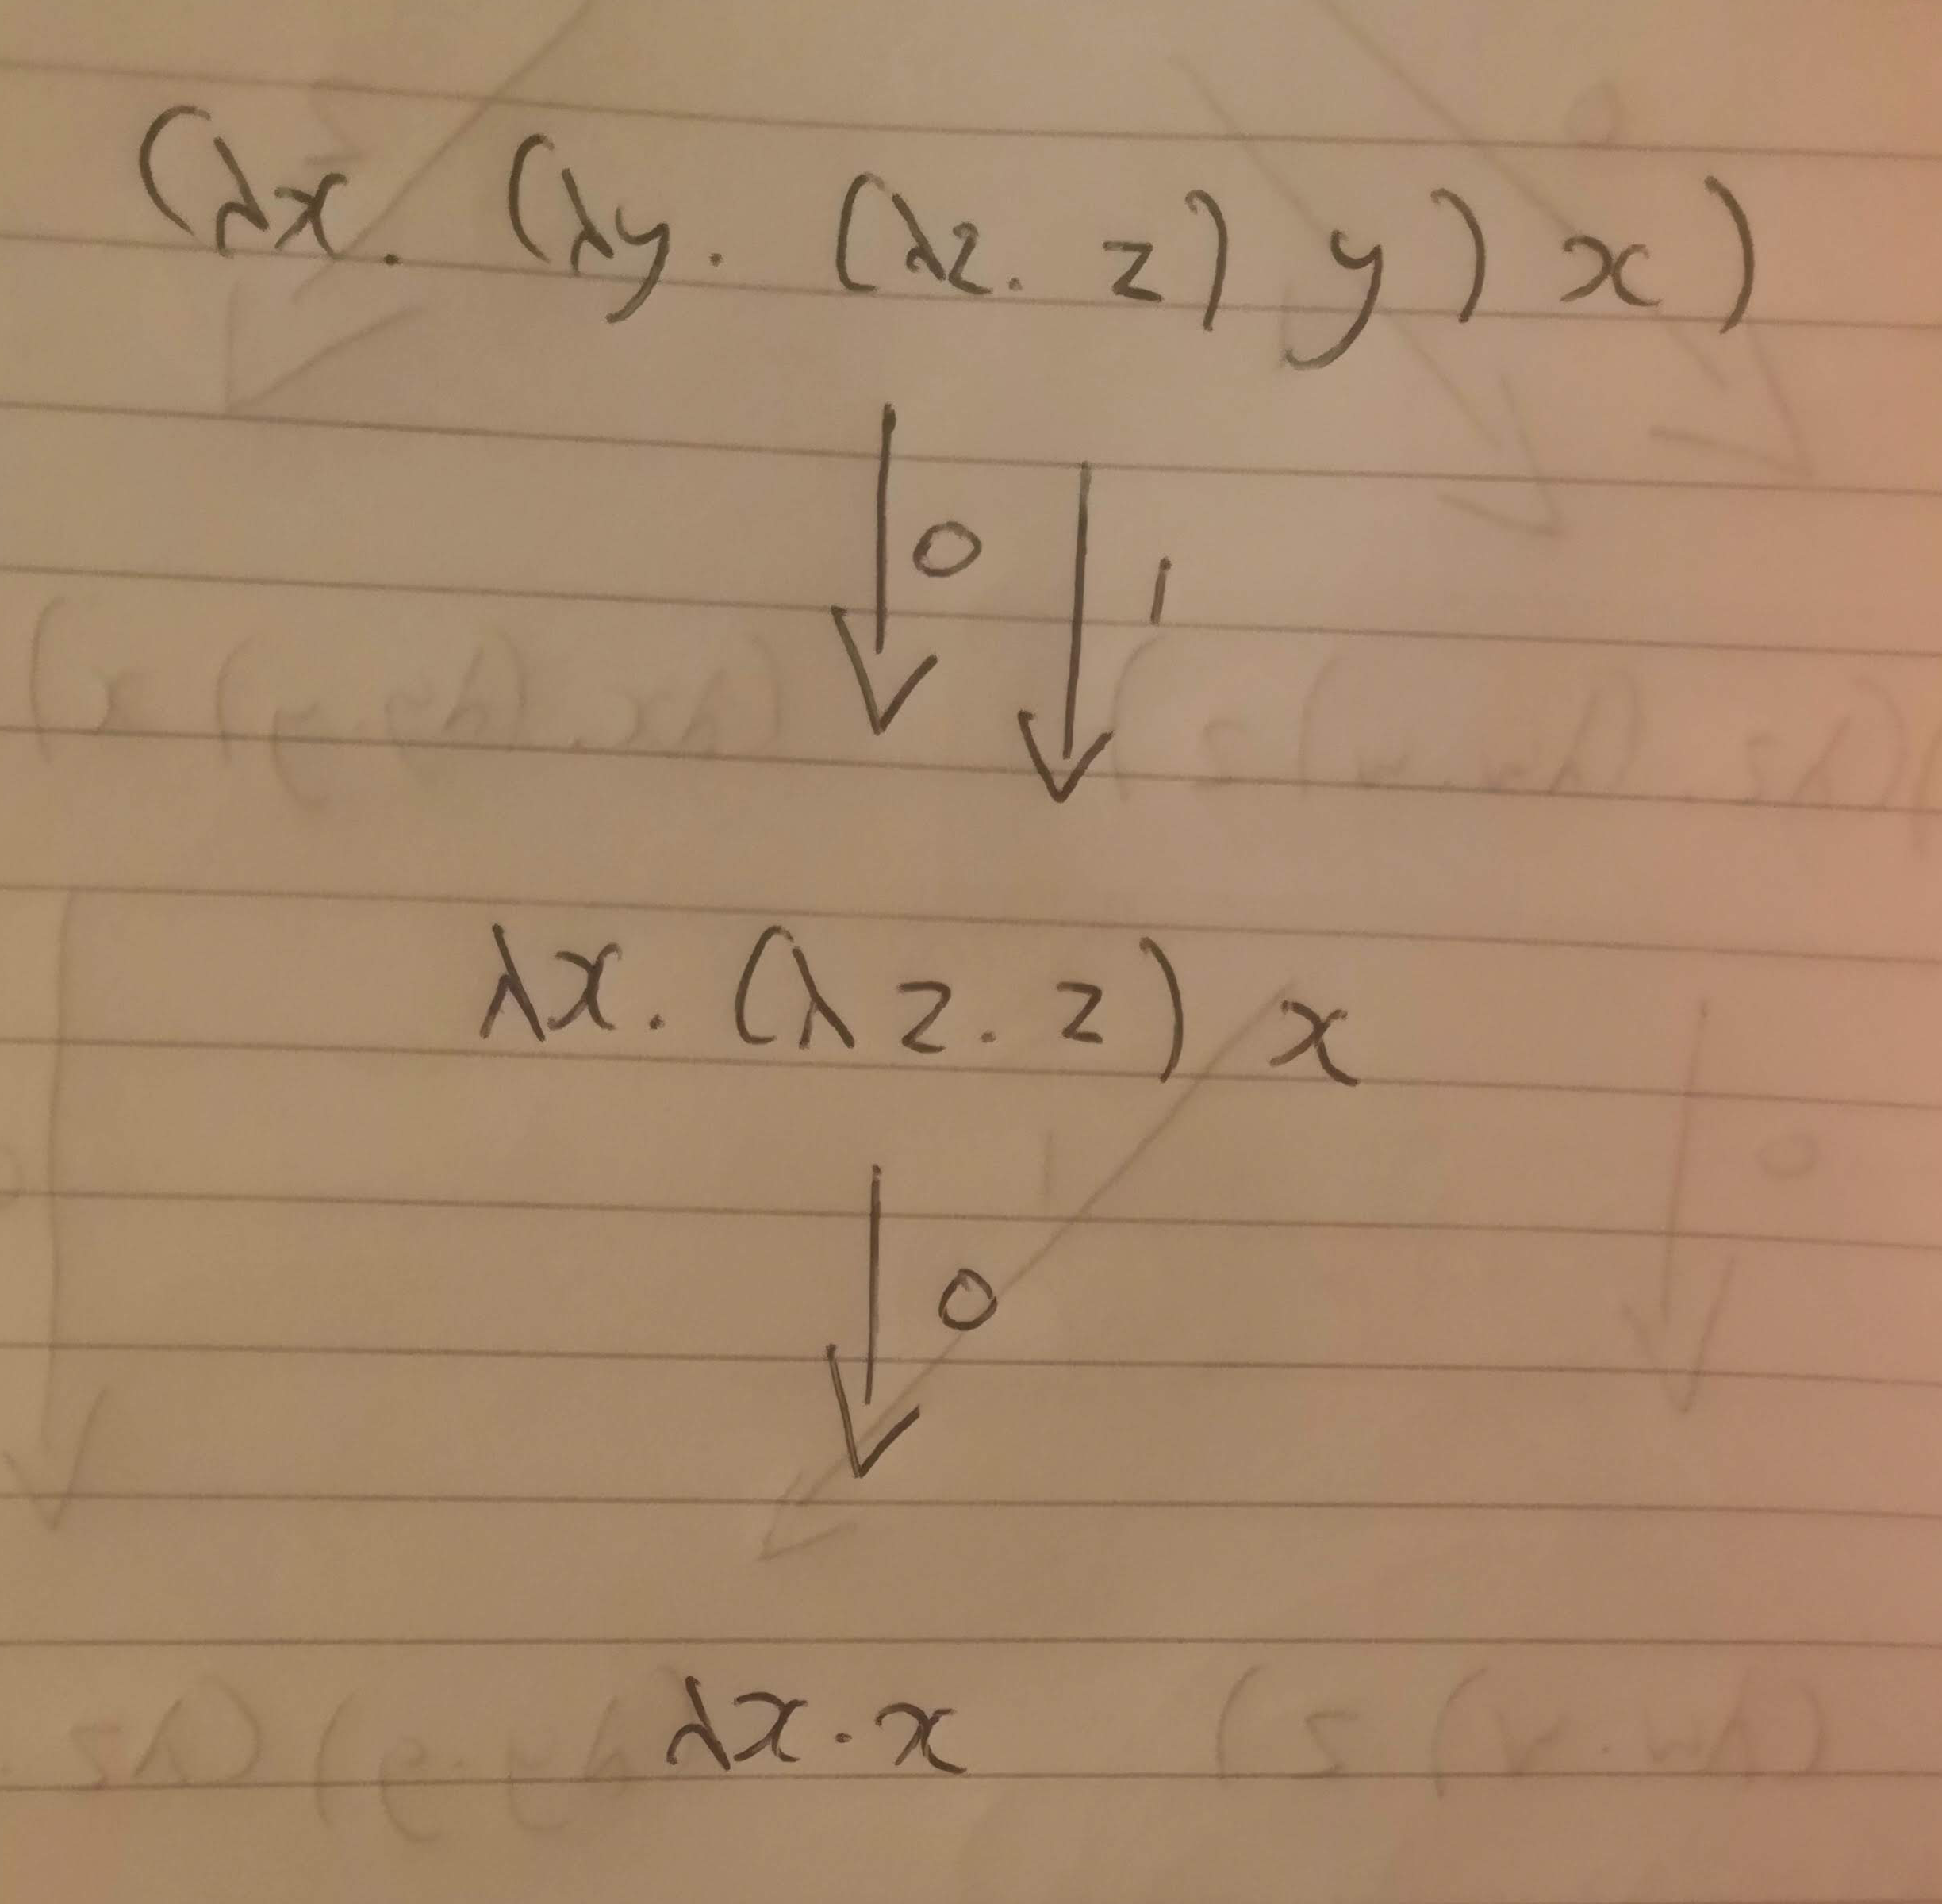 (λx. (λy. (λz. z) y) x)
0 1
λx. (λz. z) x
0
λx. x